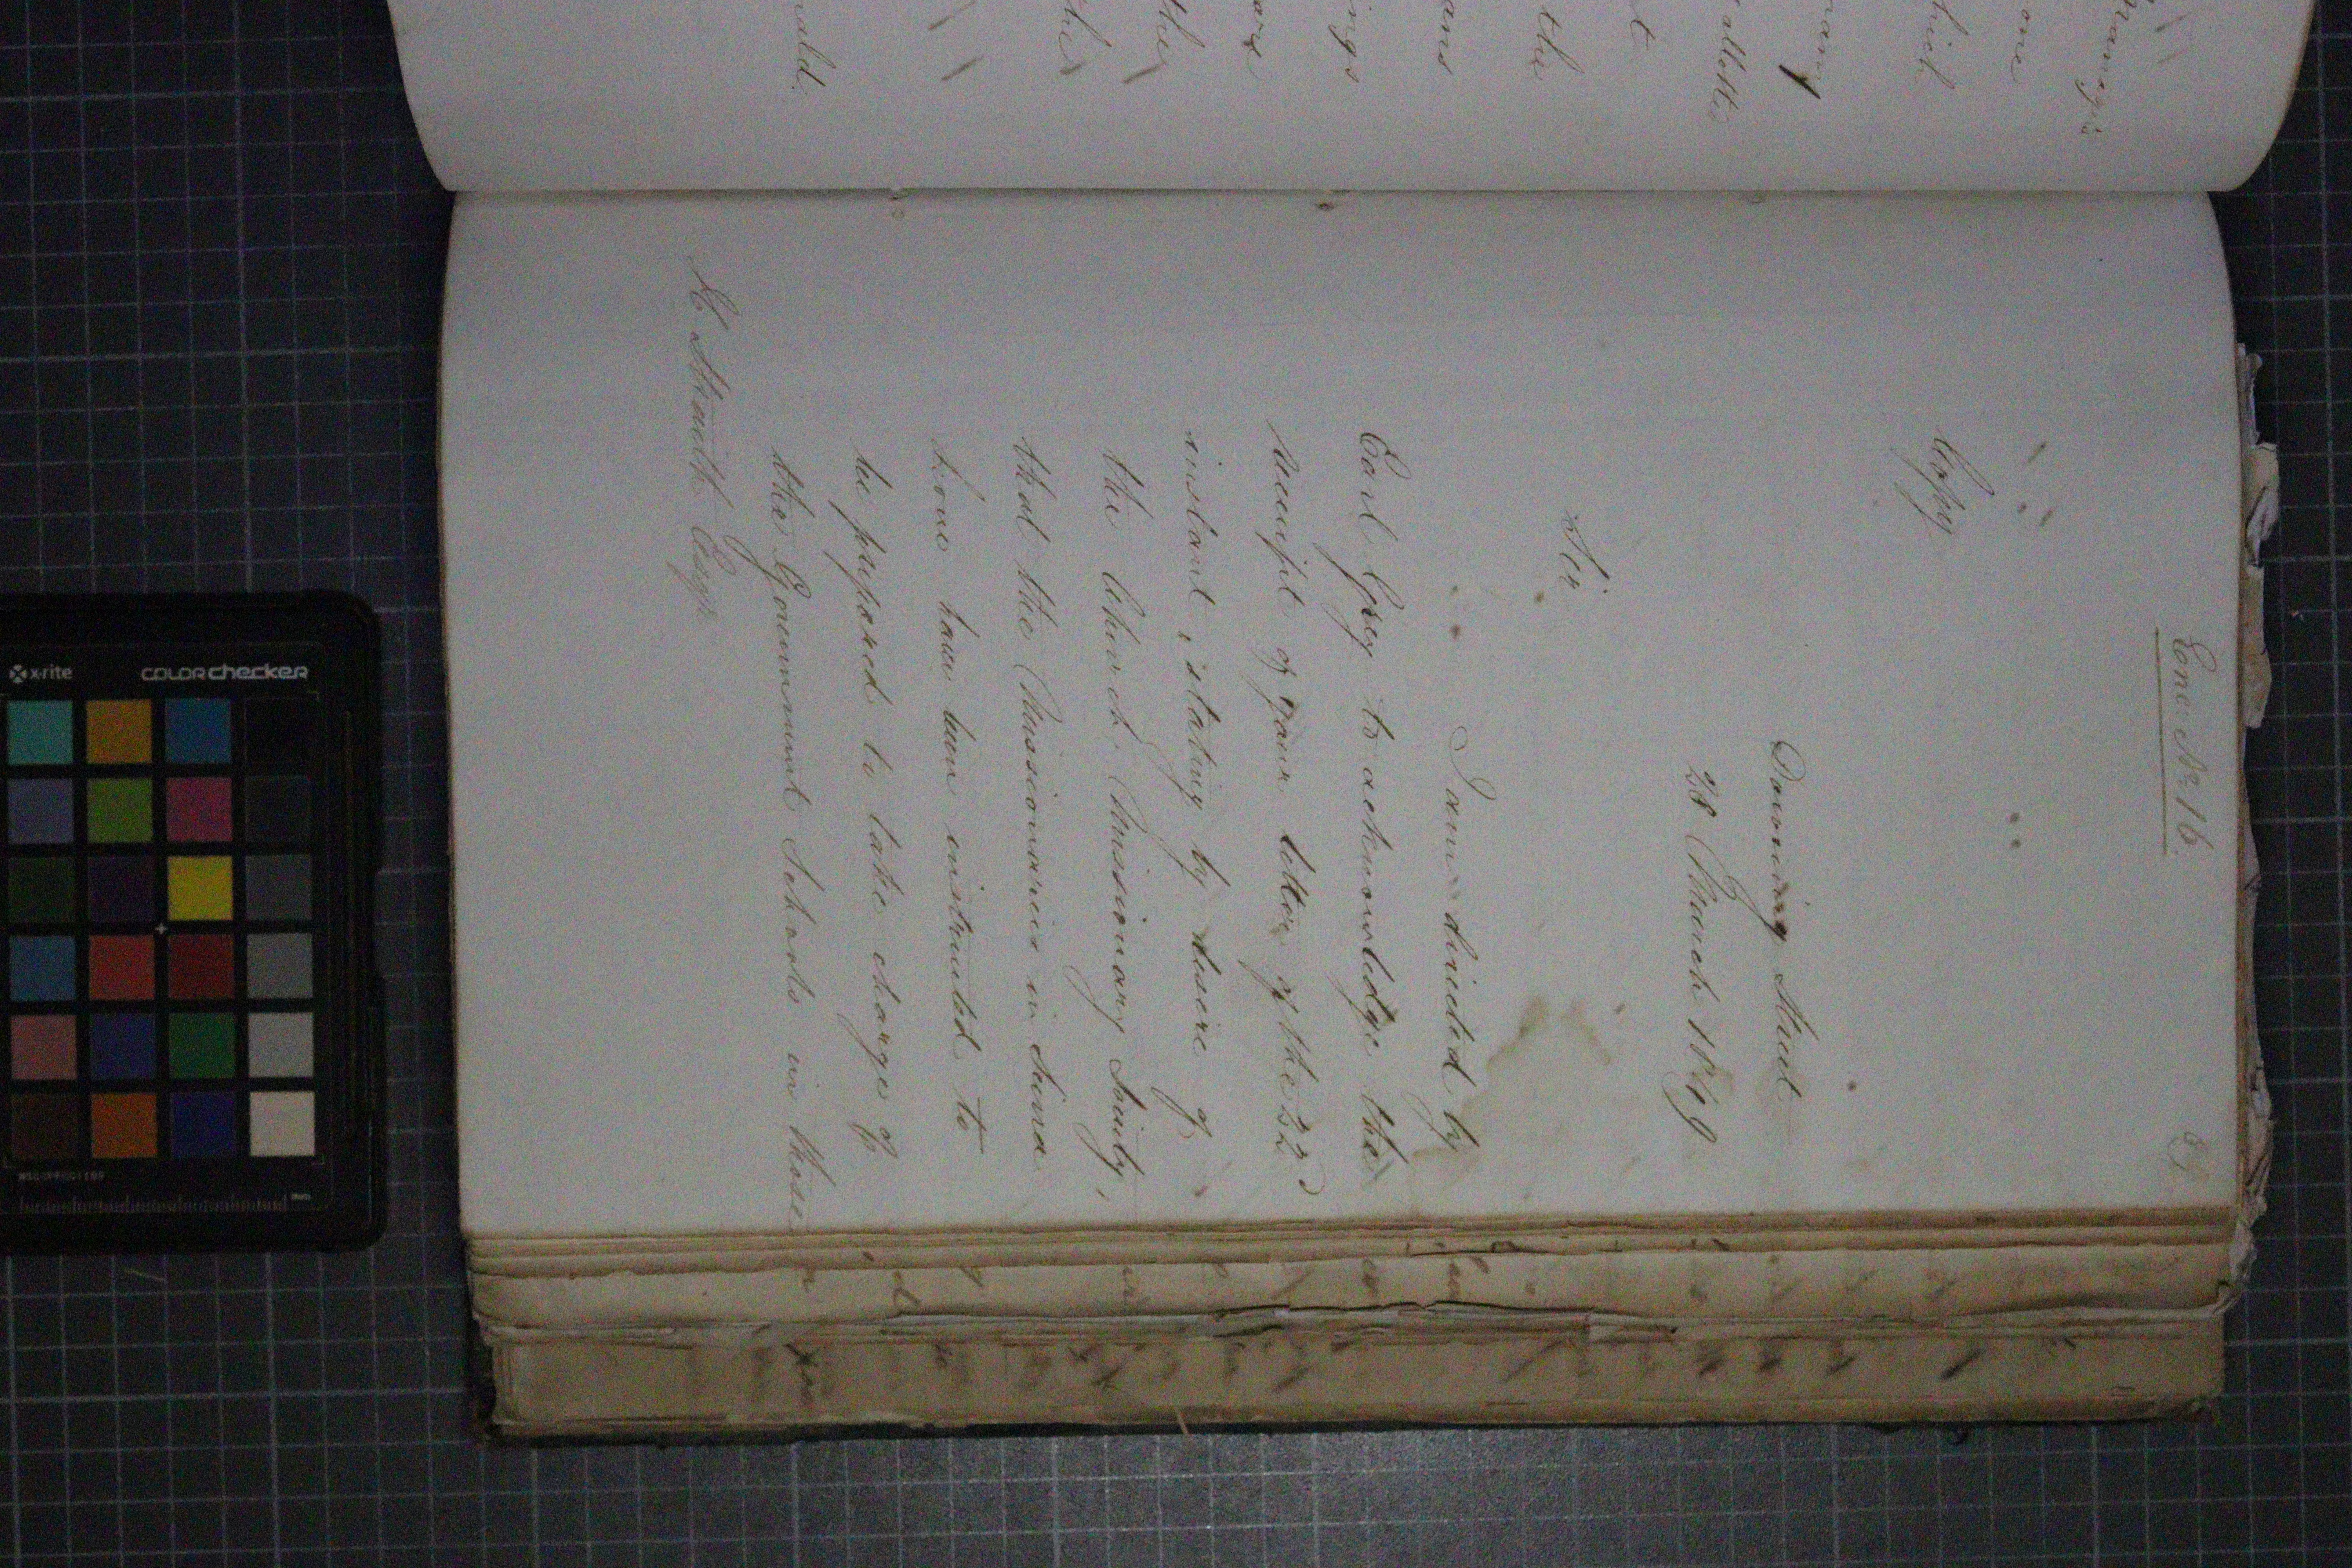 Enc: No. 16.
Copy
Downing Street
28 March 1849
Sir
I am directed by
Earl Grey to acknowledge the
receipt of your letter of the 22d
instant, stating by desire of
the Church Missionary Society,
that the Missionaries in Sierra
Leone have been instructed to
be prepared to take charge of
the Government Schools in those
H Straith Esqr.
one
which
many
allotted
the
the
the
x-rite colorchecker